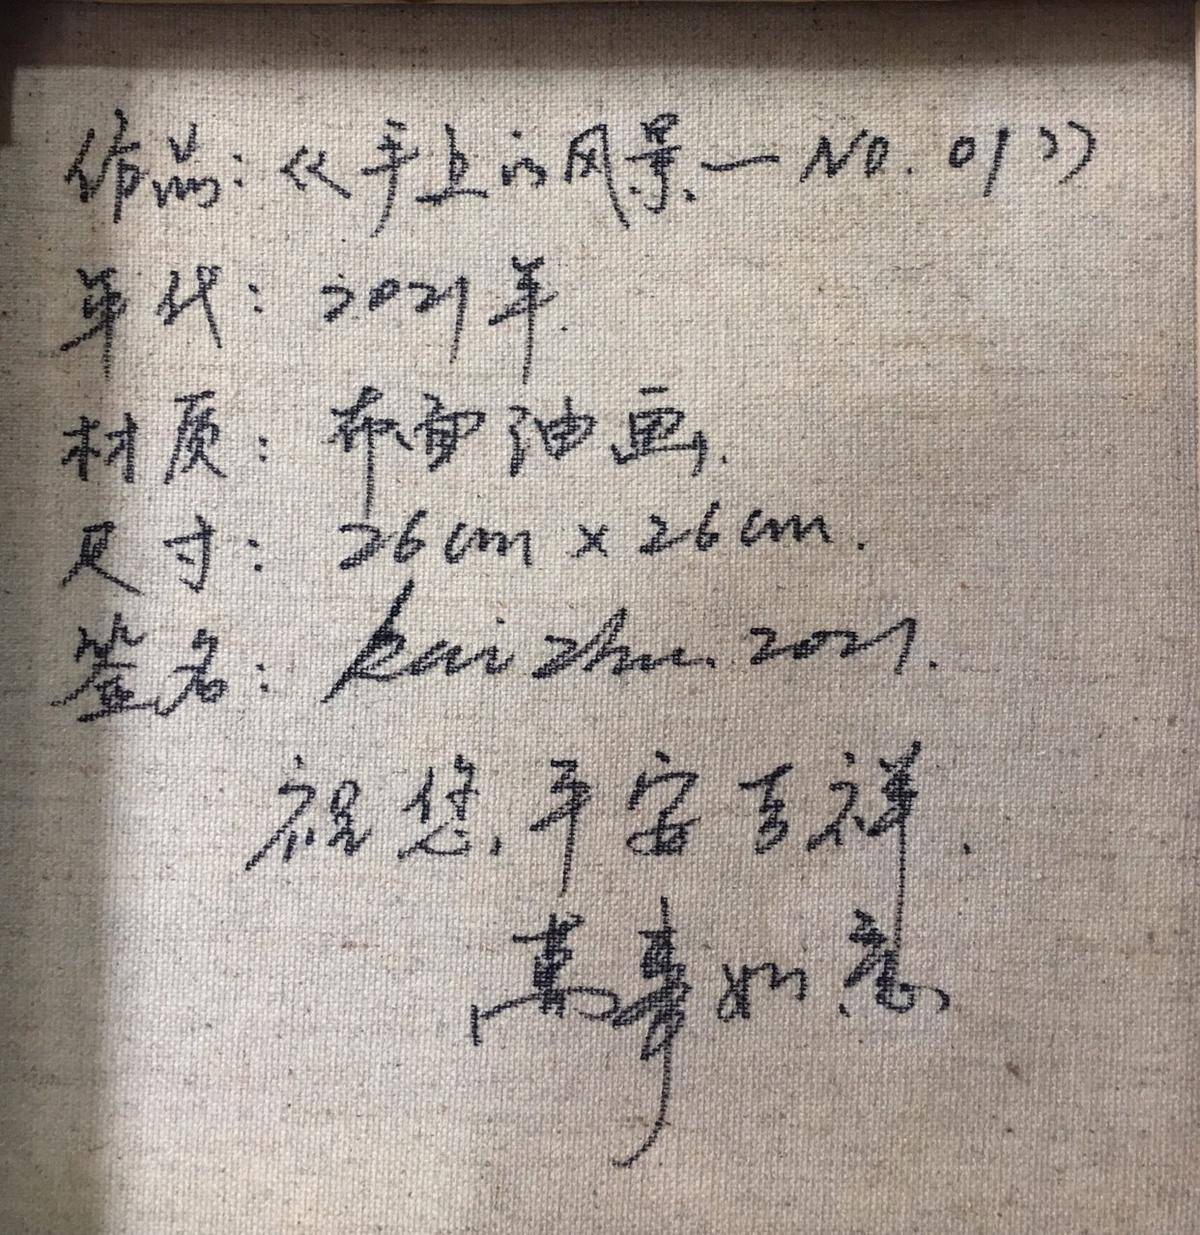 作品：《手上的风景—NO.01》
年代：2021年
材质：布面油画.
尺寸：26cm×26cm.
签名：Kai Zhu. 2021.
祝您平安吉祥.
萬事如意